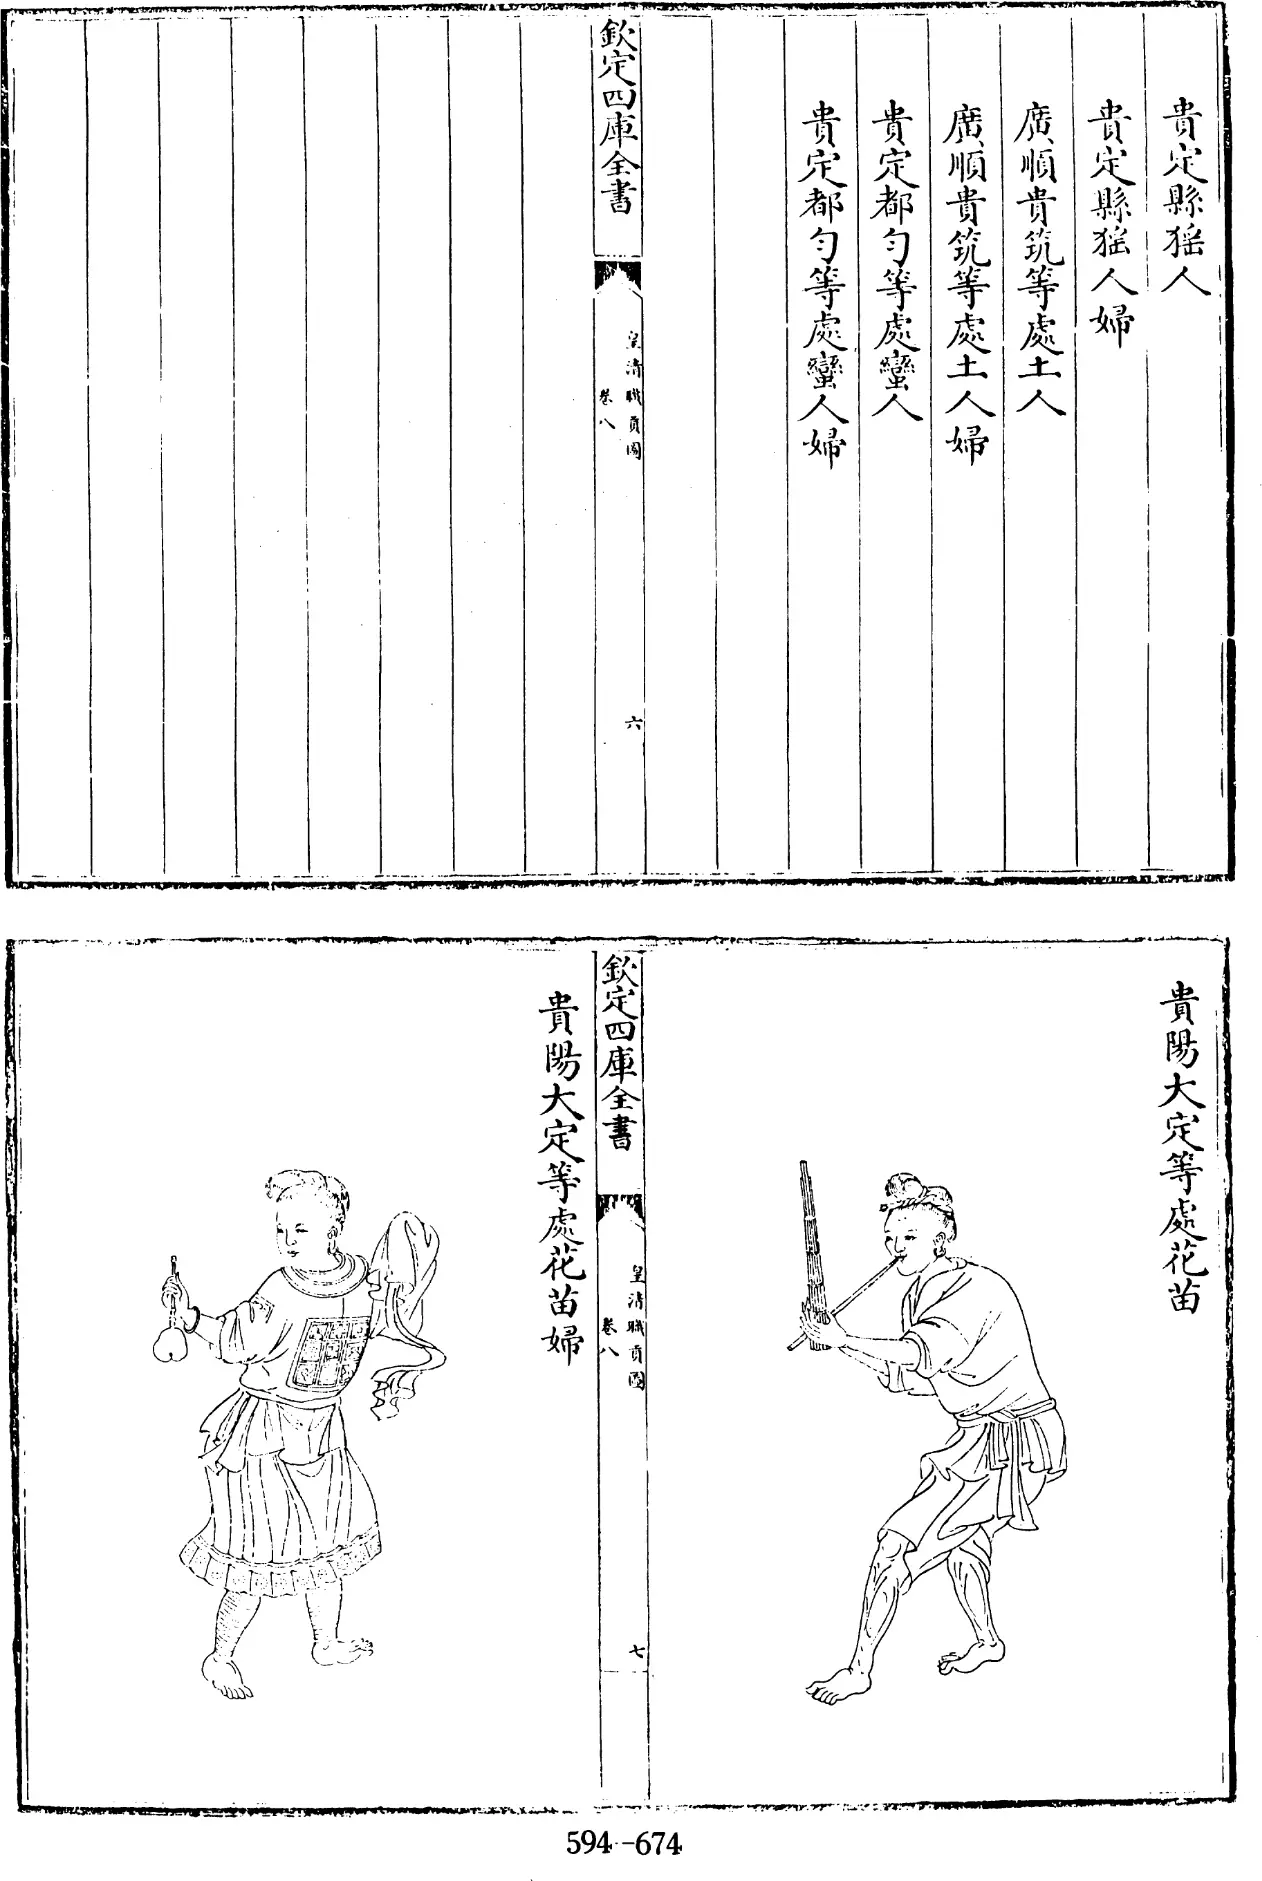 貴定縣猺人
貴定縣猺人婦
廣順貴筑等處土人
廣順貴筑等處土人婦
貴定都匀等處蠻人
貴定都匀等處蠻人婦
欽定四庫全書
皇清職貢圖
卷八
六
貴陽大定等處花苗
欽定四庫全書
皇清職貢圖
卷八
七
貴陽大定等處花苗婦
594-674